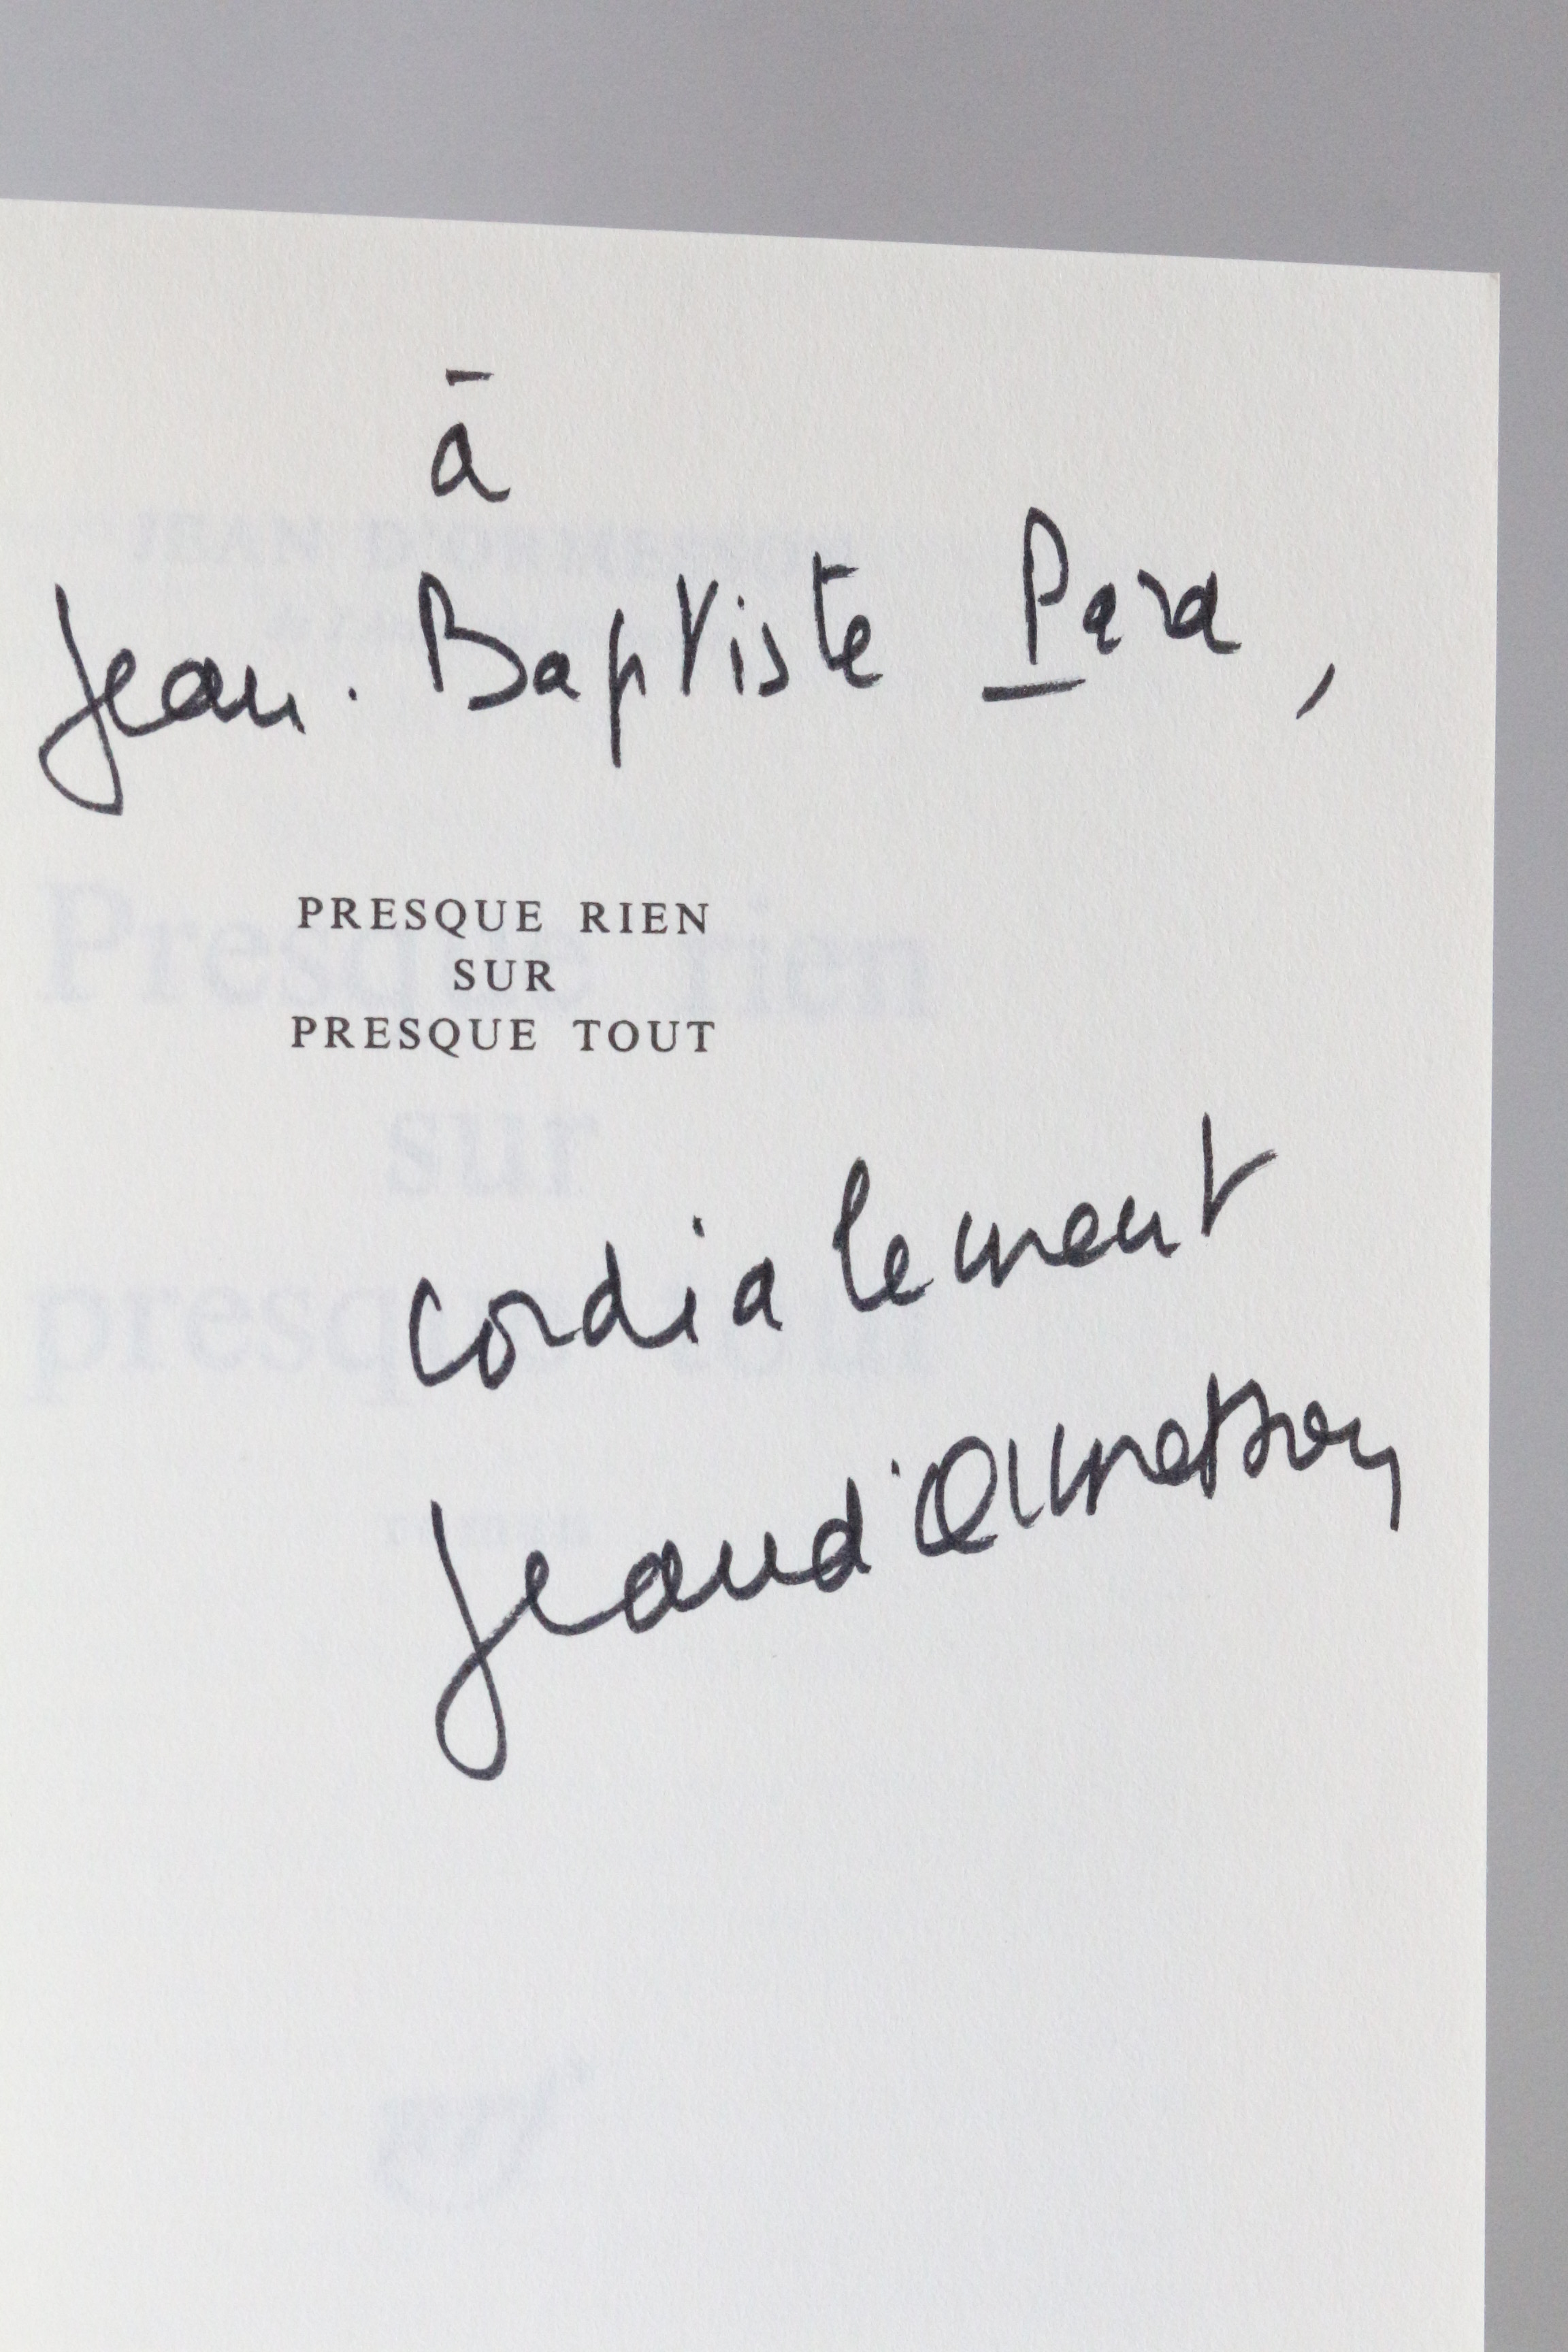 à
Jean-Baptiste Para,
PRESQUE RIEN
SUR
PRESQUE TOUT
cordialement
Jean d'Ormesson